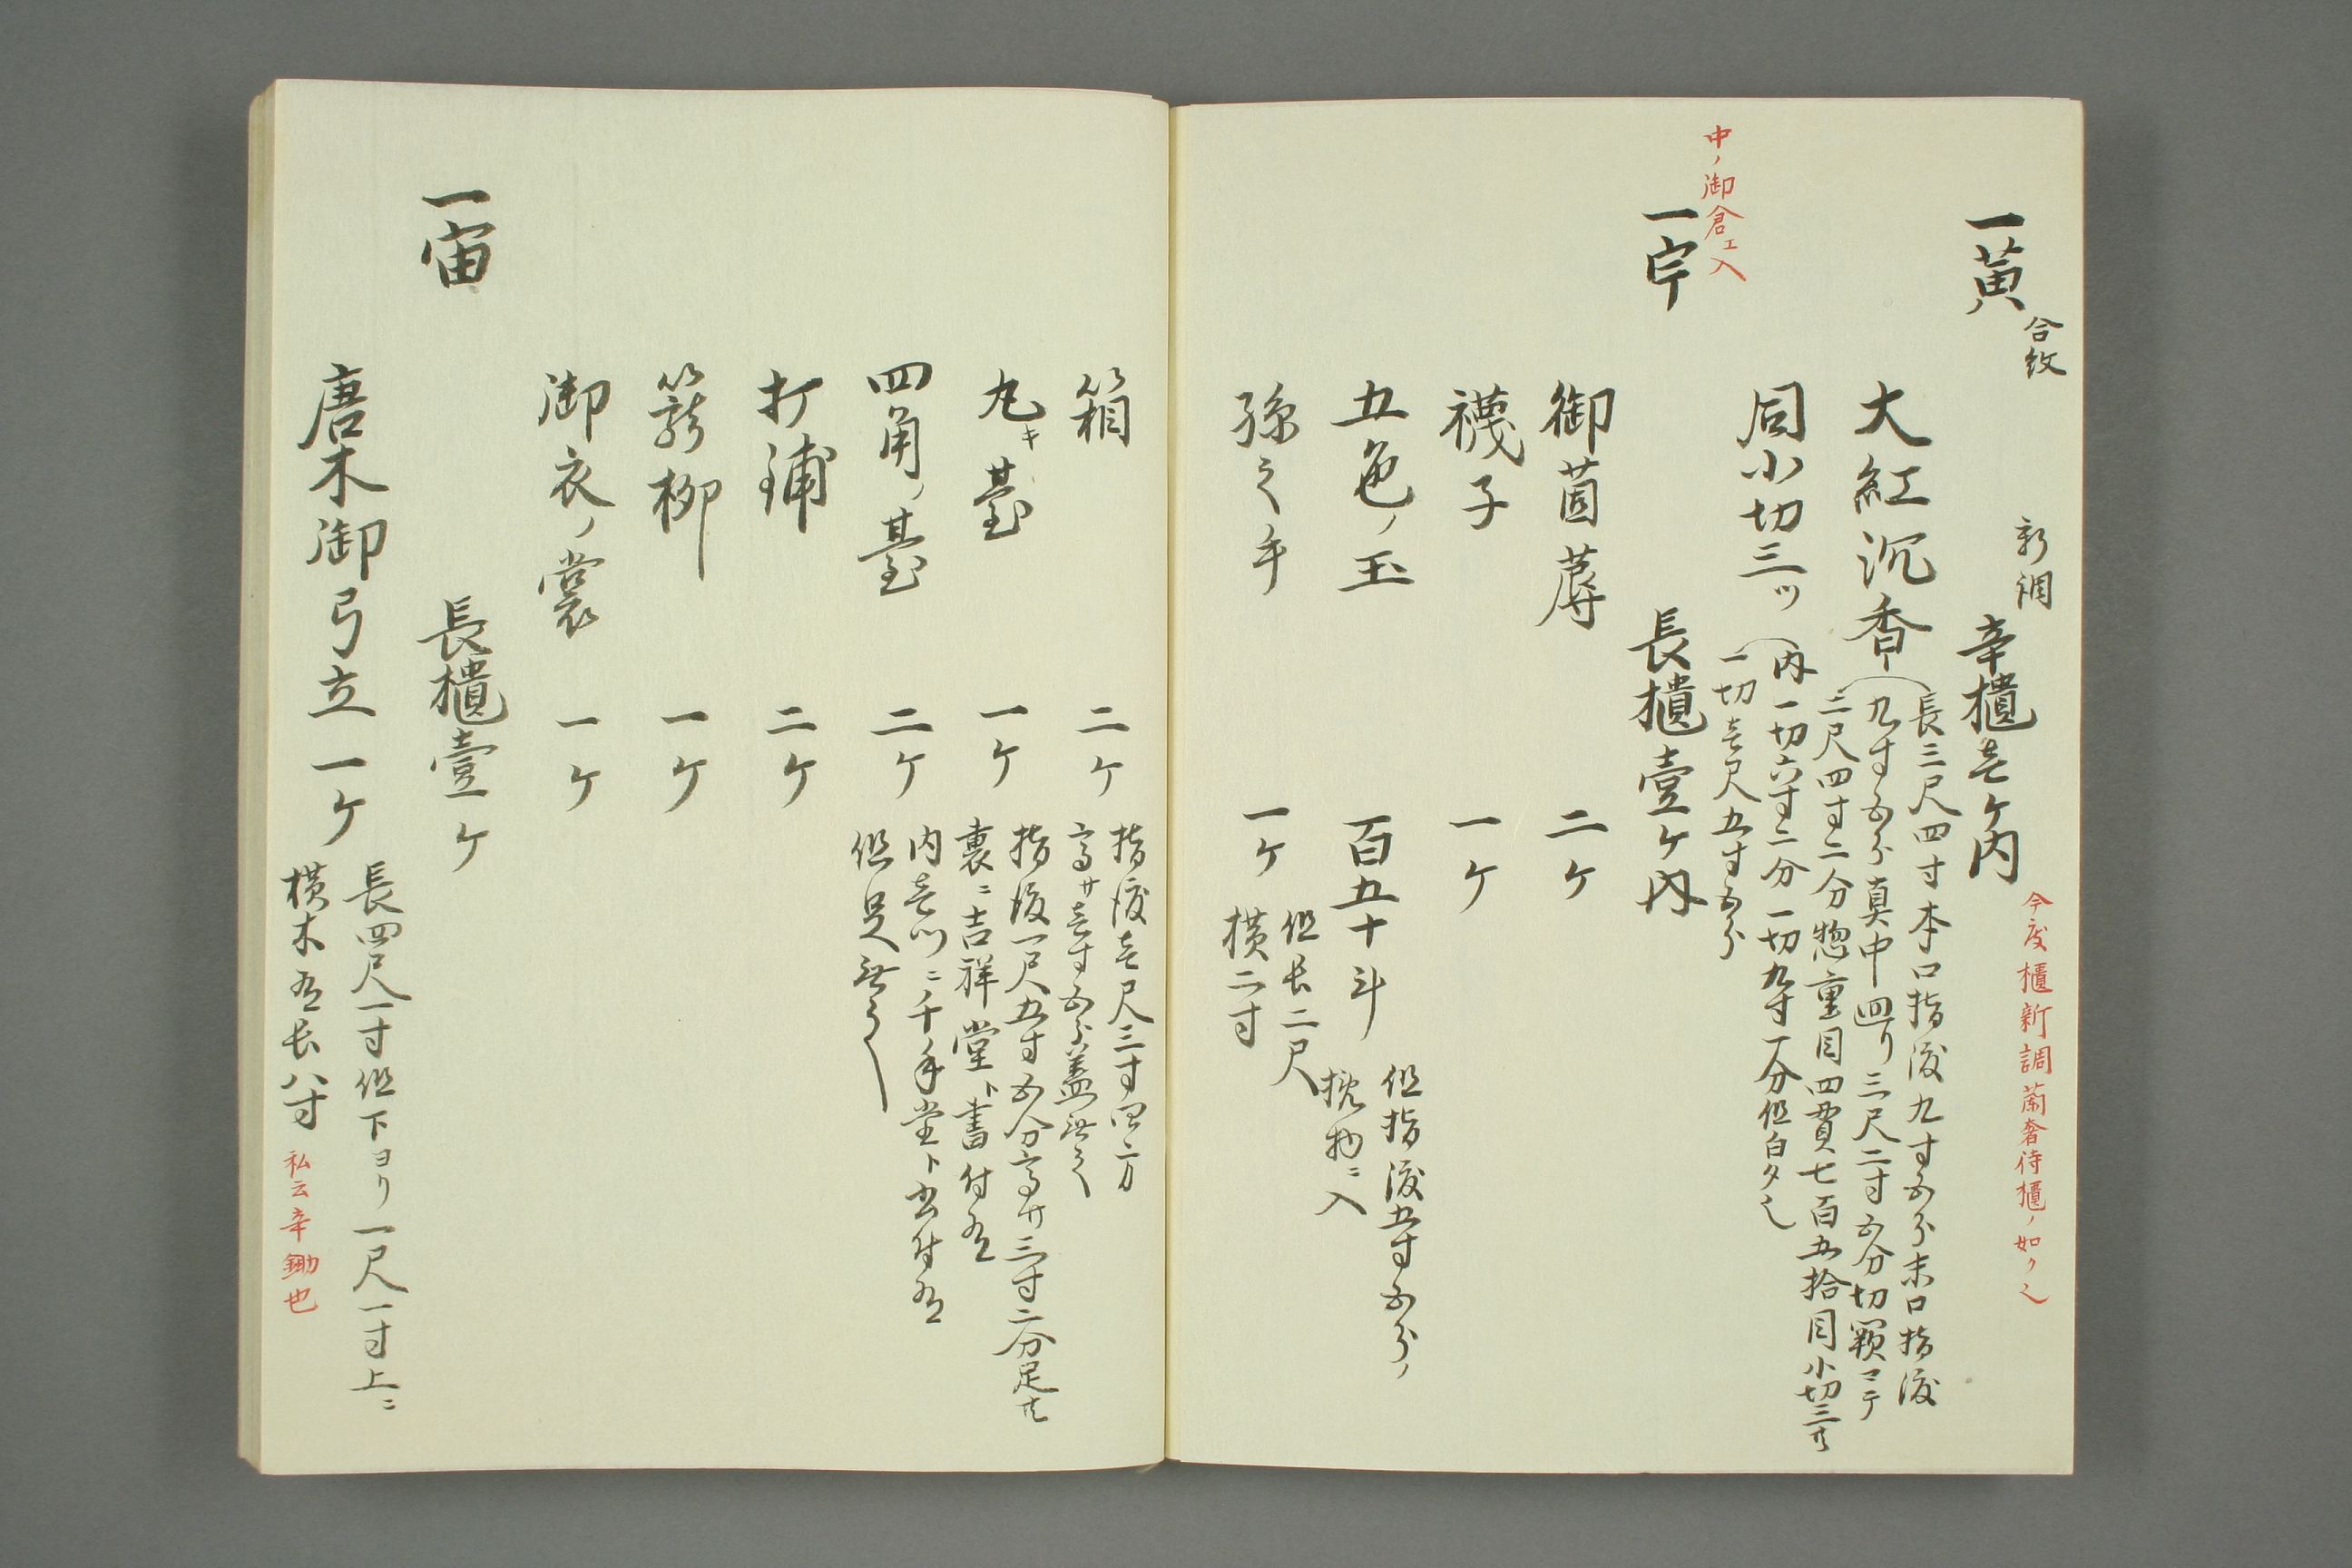 合紋
一黄
新調
辛櫃壱ケ内
今度櫃新調蘭奢待櫃ノ如ク之
大紅沉香
長三尺四寸本口指渡九寸五分末口指渡
九寸五分真中廻リ三尺二寸五分切顆ニテ
二尺四寸二分惣重目四貫七百五拾目小切三共
同小切三ツ
内一切六寸二分一切九寸一分但白夕之
一切壱尺五寸五分
中ノ御倉エ入
一宇
長櫃壹ケ内
御茵蓐 二ケ
襪子 一ケ
五色ノ玉 百五十斗
但指渡五寸五分ノ
物ニ入
孫之手 一ケ
但长二尺
横二寸
箱 二ケ
指渡壱尺三寸四方
高サ壱寸五分蓋無之
丸キ臺 一ケ
指渡一尺五寸五分高サ三寸二分足共
裏ニ吉祥堂ト書付有
四角ノ臺 二ケ
内壱ツニ千手堂ト書付有
但足無之
打鋪 二ケ
柳 一ケ
御衣ノ裳 一ケ
一宙
長櫃壹ケ
唐木御弓立一ケ
長四尺一寸但下ヨリ一尺一寸上ニ
横木有长八寸
私云辛鋤也